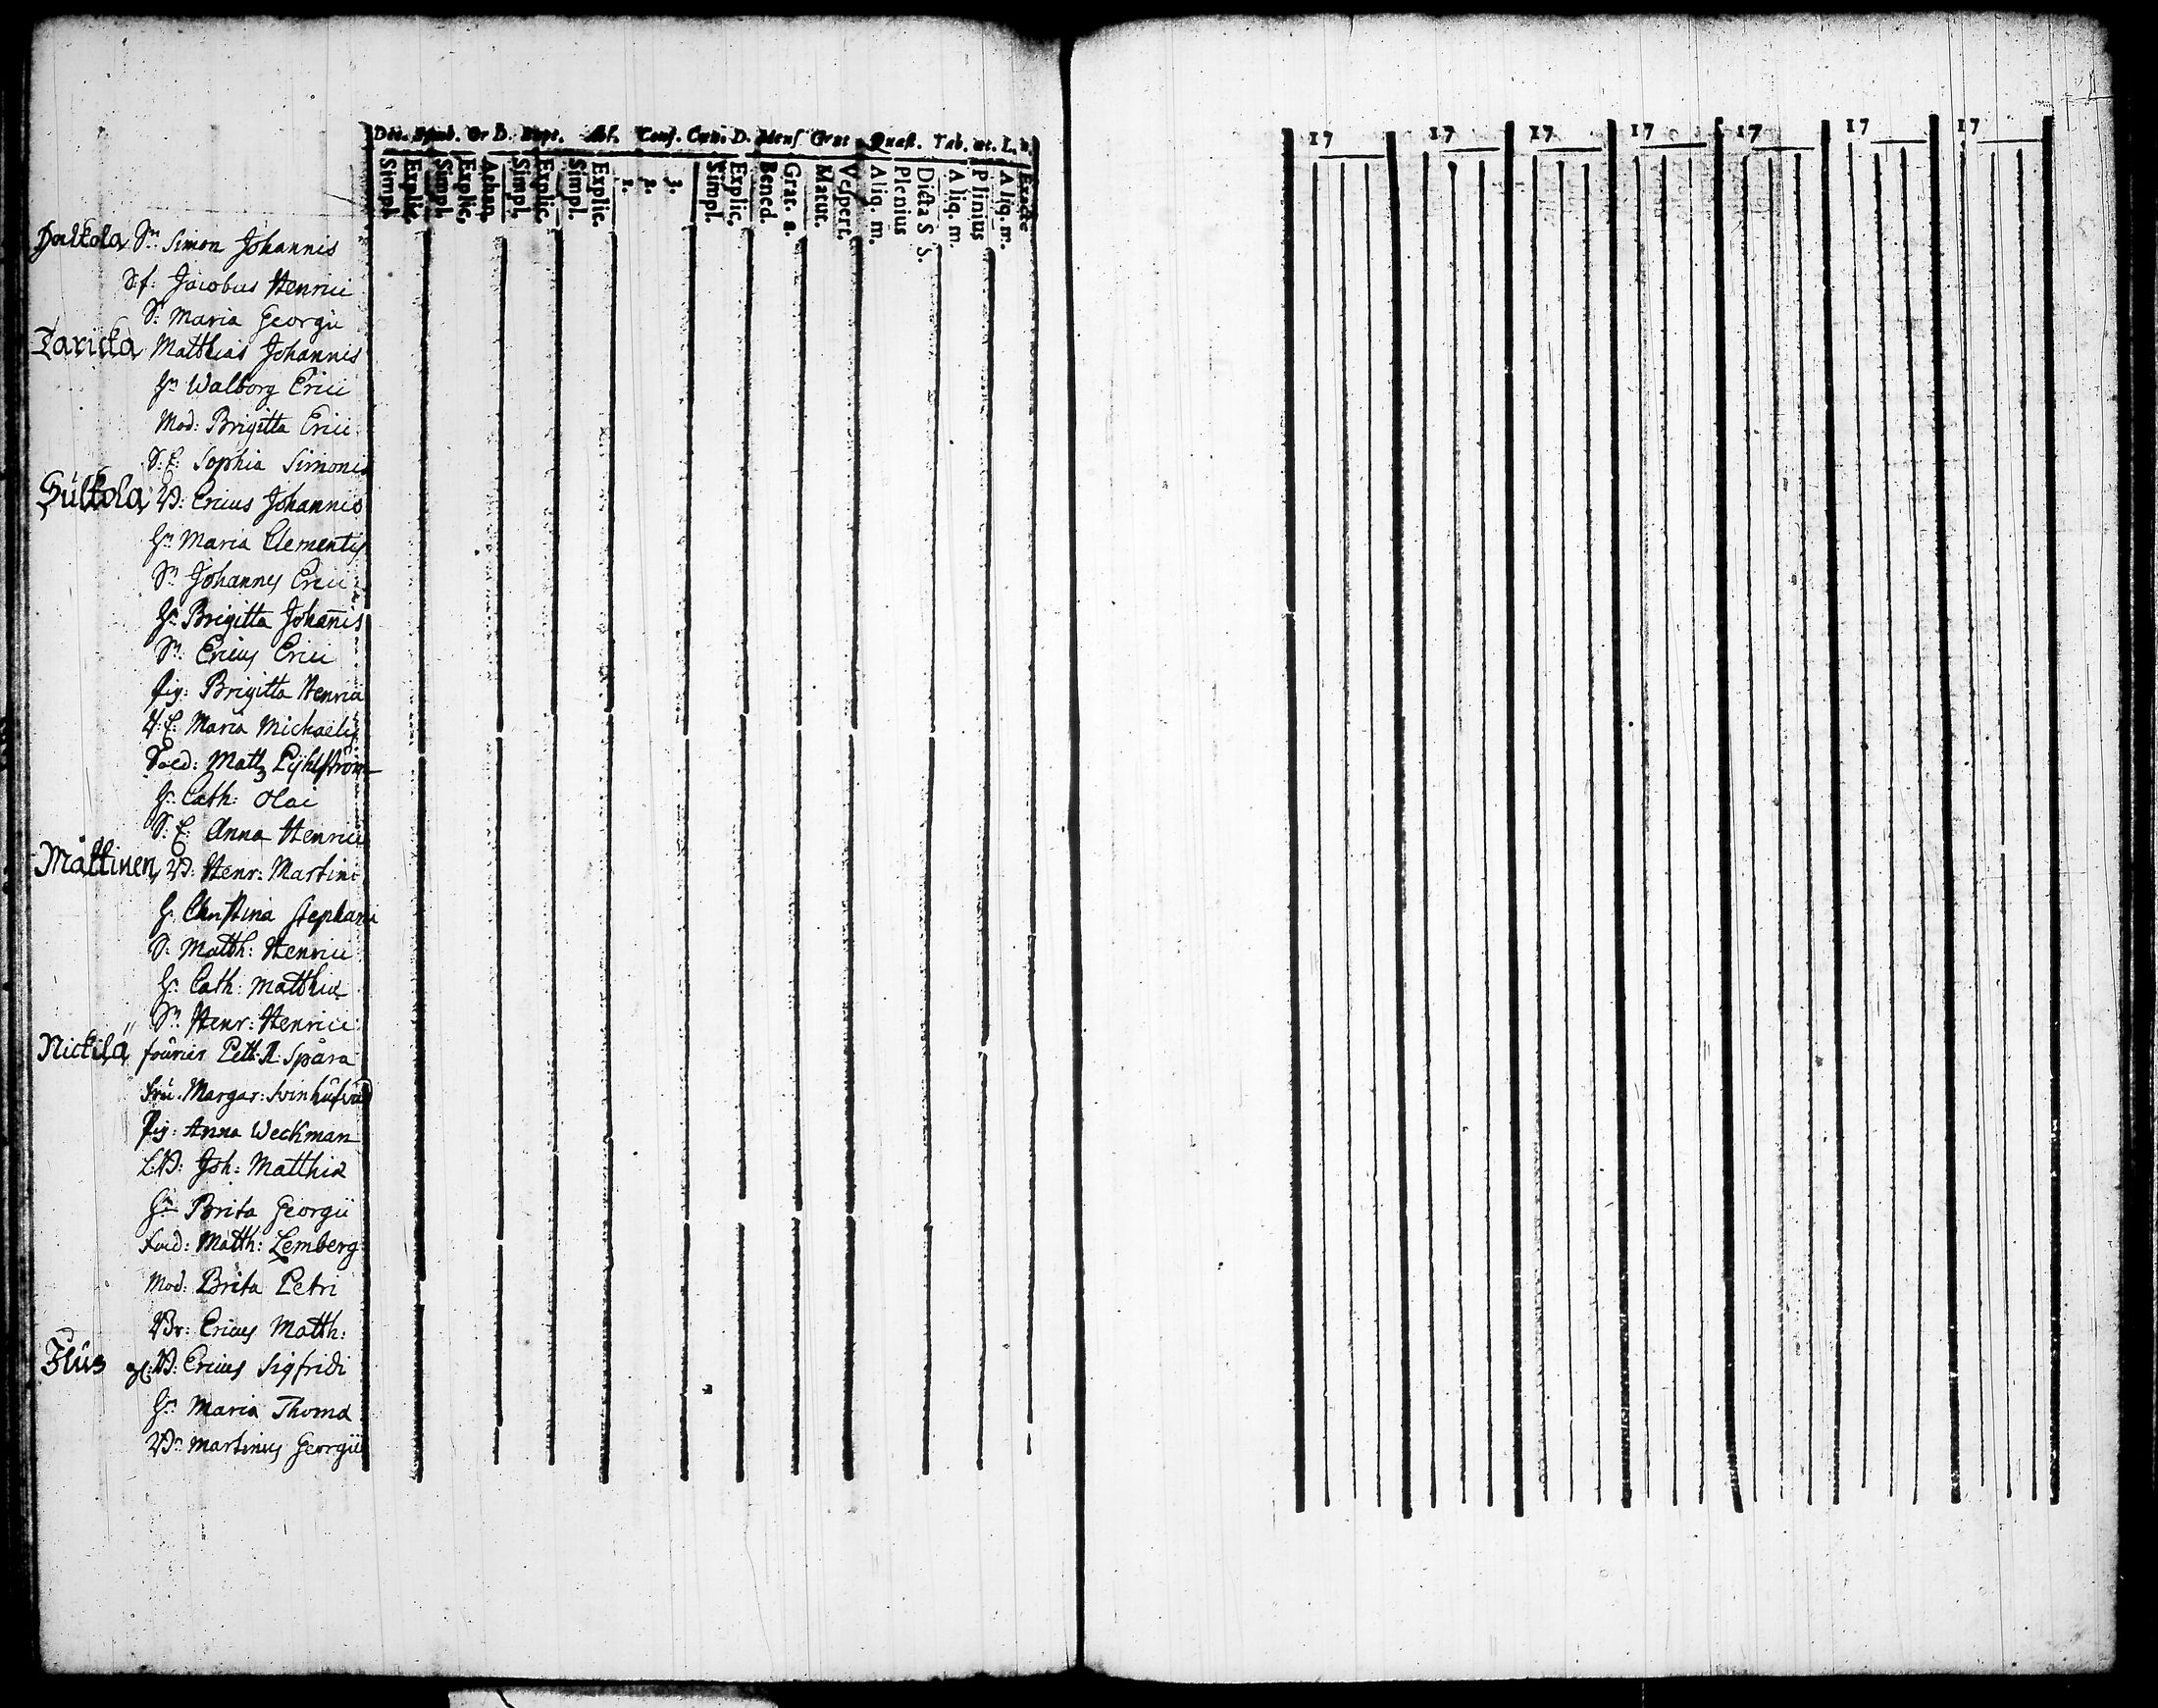 Dec. Symb. Or D. Bapt. Abs. Conf. Cœn. D. Mens Grat Quæst. Tab. œc. L. n.
Simpl.
Explic.
Simpl.
Explic.
Athan.
Simpl.
Explic.
Simpl.
Explic.
1.
2.
3.
Simpl.
Explic.
Bened.
Grat. a.
Matut.
Vespert.
Aliq. m.
Plenius
Dicta S S.
Aliq. m.
Plinius
Aliq. m.
Exacte
17 17 17 17 17 17 17
Sn Simon Johannis
Jacobus Henrici
S: Maria Georgii
Matthias Johannis
Hn Walborg Erici
Mod: Brigitta Erici
S: E: Sophia Simonis
Sulkola V: Ericus Johannis
Hn Maria Clementis
Sn Johannes Erici
Hn Brigitta Johanis
Sn: Ericus Erici
Pig: Brigitta Henrici
H: E: Maria Michaelis
Matts
Hn Cath: Olai
S: E: Anna Henrici
Mattinen V: Henr: Martini
H: Christina Stephani
S: Matth: Henrici
Hn Cath: Matthiæ
Sn Henr: Henrici
Nickilä fourier Pett: Spåra
Fru. Margar: Svinhufvud
Pig: Anna Weckman
L:V: Joh: Matthiæ
Hn Brita Georgii
Matth: Lemberg
Mod: Brita Petri
Ericus Matth:
V: Ericus Sigfridi
Hn Maria Thomæ
Martinus Georgii